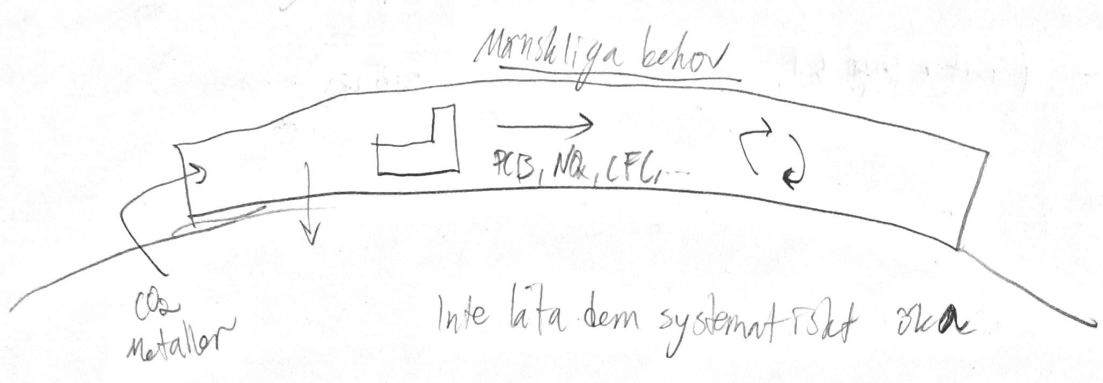 Mänskliga behov
PCB, NOx, CFC, ...
CO2
Metaller
Inte låta dem systematiskt öka